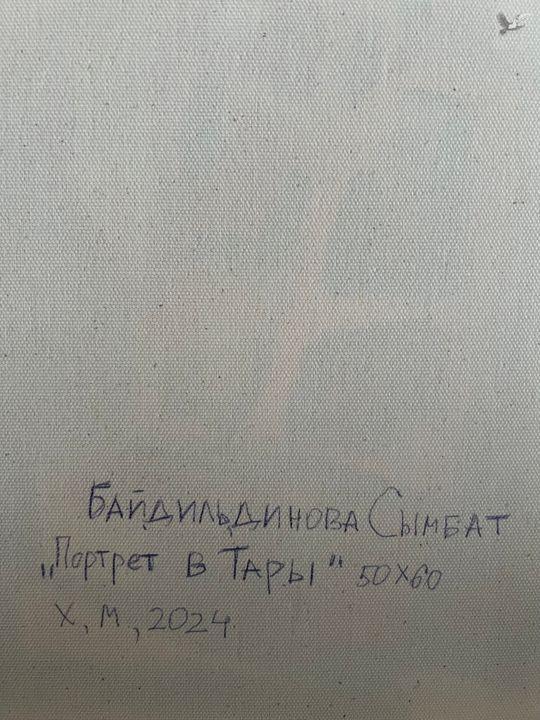 Байдильдинова Сымбат
„Портрет в Тары" 50х60
х, м, 2024